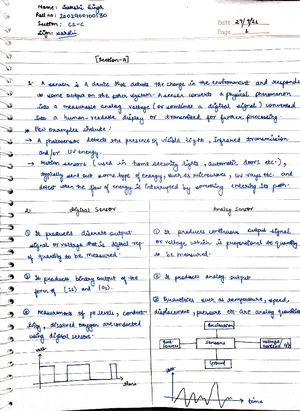 Name: Sakshi Singh
Roll no: 2002900100130
Section: CS-C
Sign: Sakshi
Date 27/9/21
Page 1
[Section-A]
1. A sensor is a device that detects the change in the environment and responds
to some output on the other system. A sensor converts a physical phenomenon
into a measurable analog voltage (or sometimes a digital signal) converted
into a human-readable display or transmitted for further processing.
* For examples include:
→ A photosensor detects the presence of visible light, infrared transmission
and/or UV energy.
→ Motion sensors (used in home security lights, automatic doors etc.),
typically send out some type of energy, such as microwaves, UV rays etc. and
detect when the flow of energy is interrupted by something entering its path.
2. Digital Sensor
① It produces discrete output
signal or voltage that is digital rep
of quantity to be measured.
② It produces binary output of the
form of (1s) and (0s).
③ Measurement of pH levels, conduct-
ivity, dissolved oxygen are conducted
using digital sensors.
Volt
time
Analog Sensor
① It produces continuous output signal
or voltage which is proportional to quantity
to be measured.
② It produces analog output
③ Quantities such as temperature, speed,
displacement, pressure etc are analog quantities
Excitation
Sensors
Ground
Volt
time